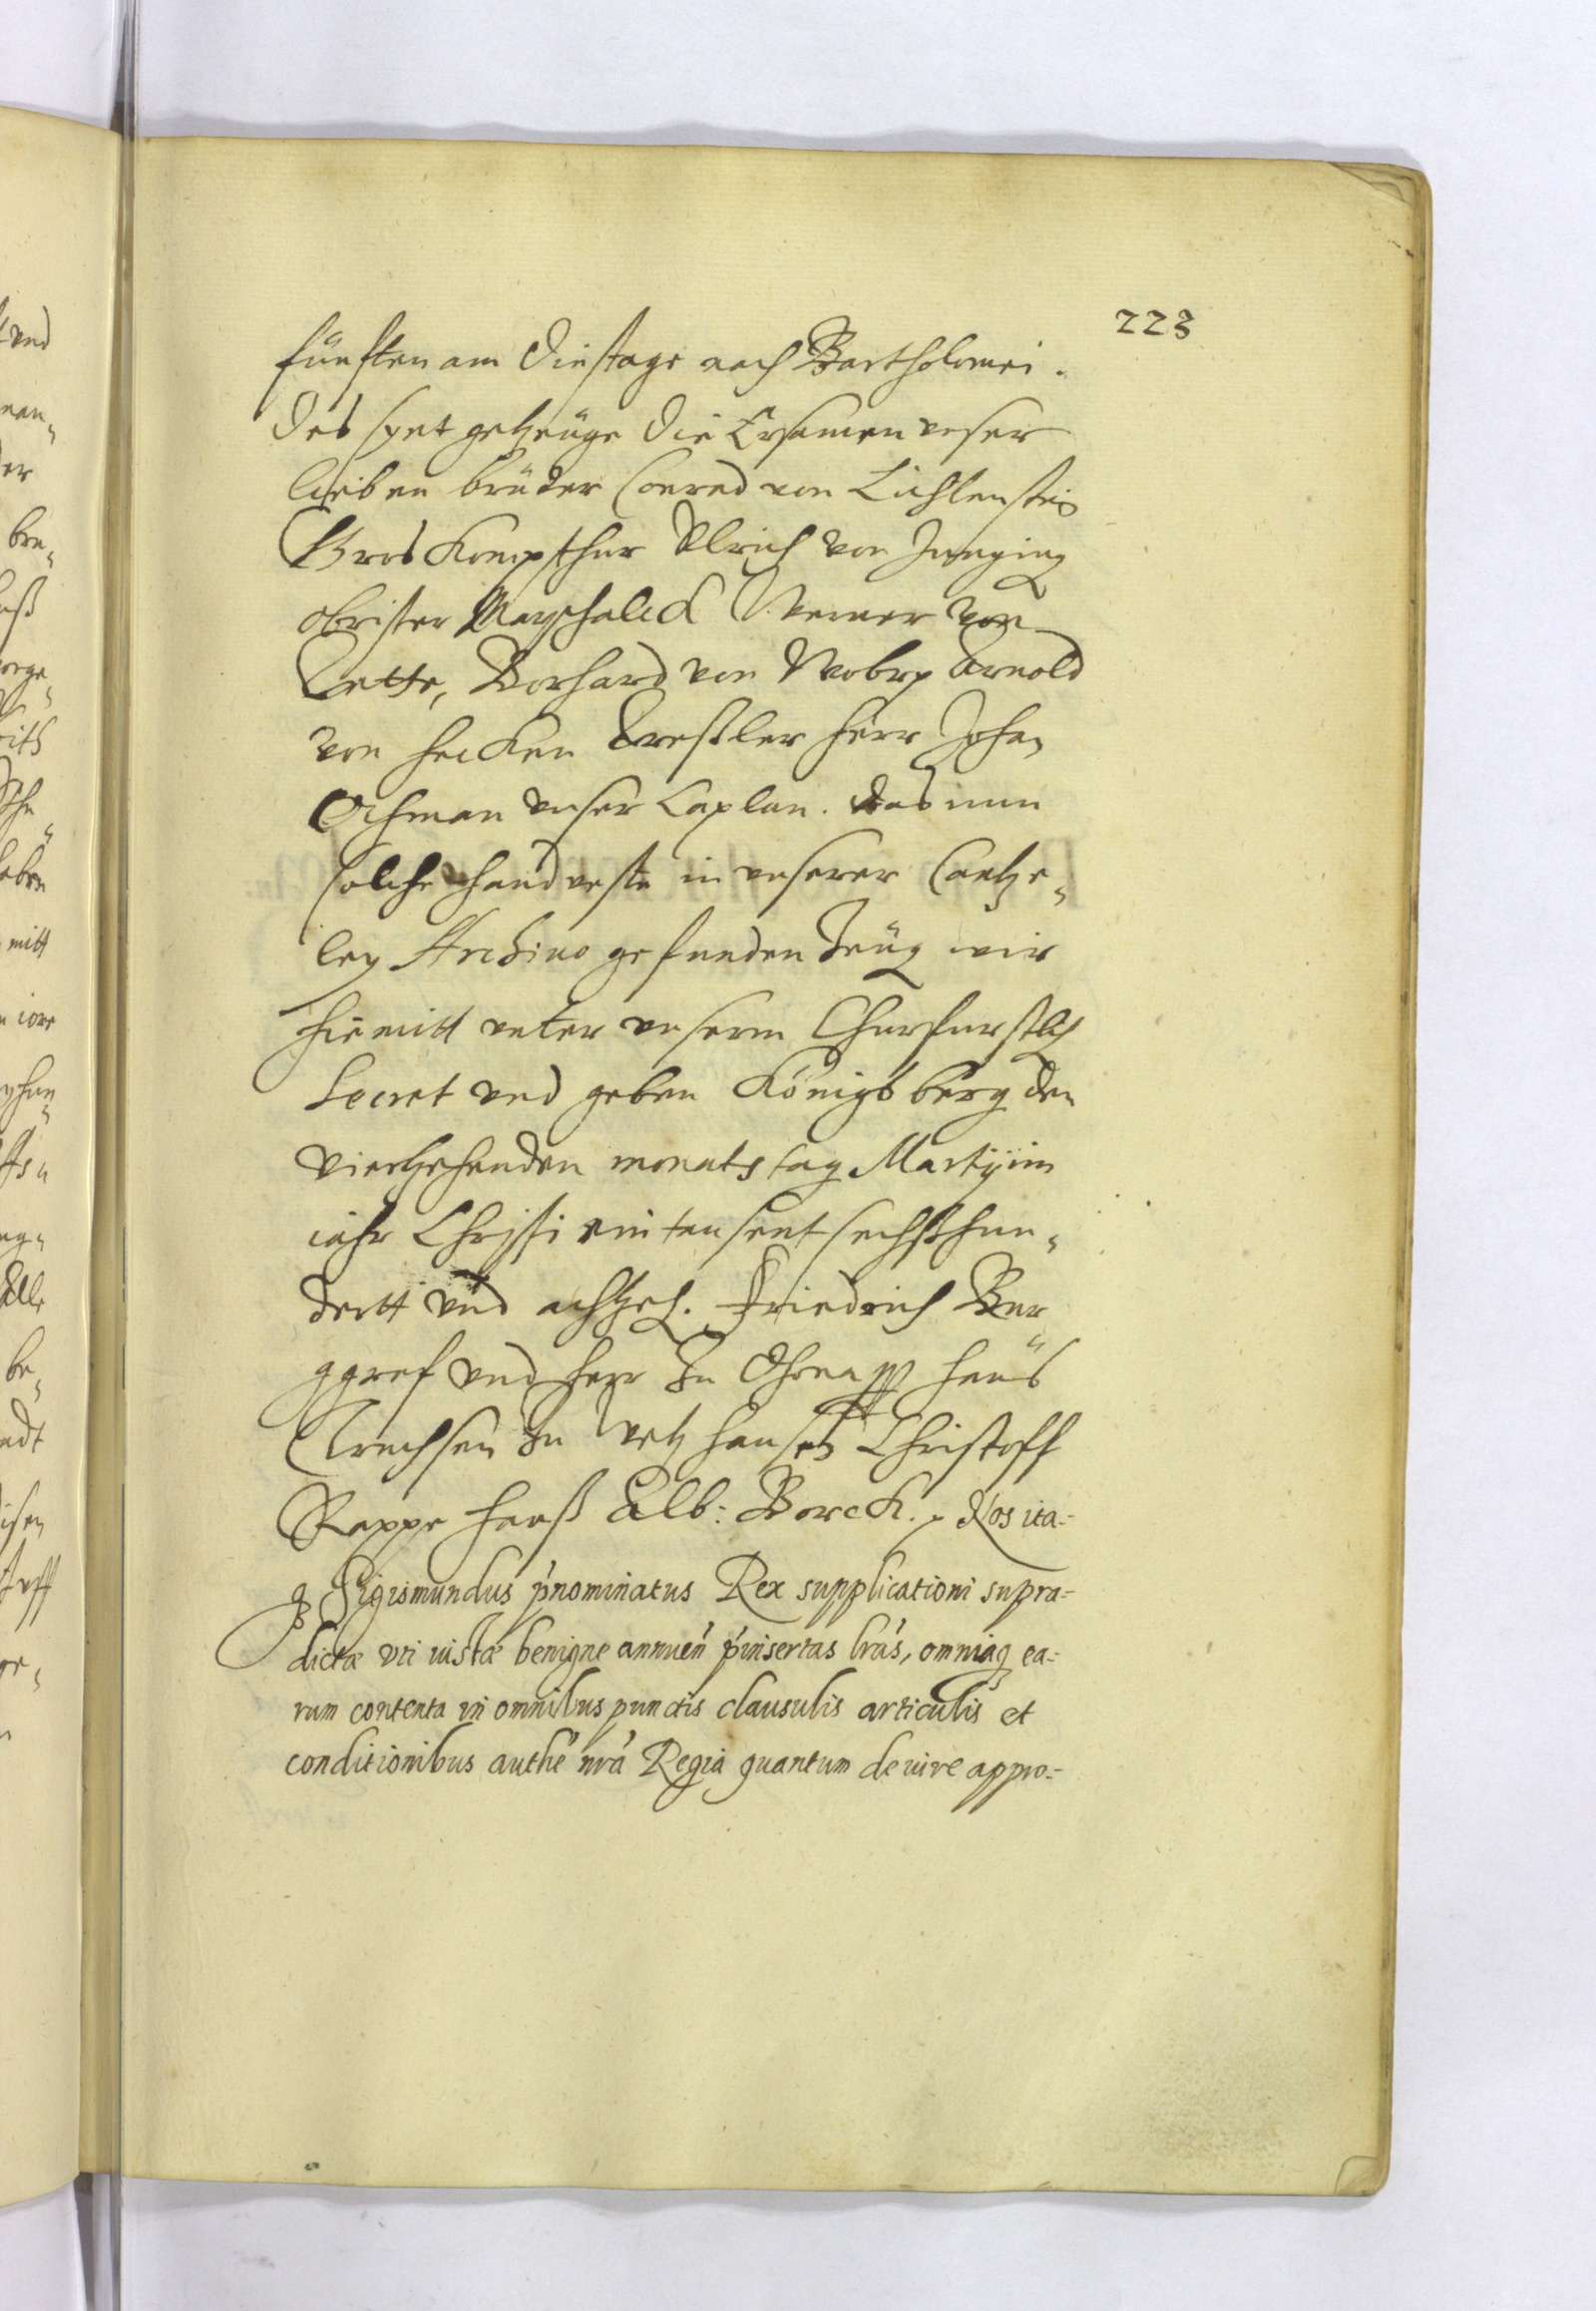 223
fünfften am Dinstage nach Bartholomei.
Des synt getzeüge die Ersamen vnser
lieben brüder Conrad von Lichtenstein
Gros Kompthur Vlrich von Junging
obrister Marschalck Werner von
Tette, Borhard von Wobrp Arnold
von Hecken Treßler Herr Johan
Ochman vnser Caplan. Das nun
solche handveste in vnserer Cantze„
ley Archivo gefunden Zeüg wir
hiemitt vnter vnserm Churfurstlich
Secret vnd geben Königsberg den
viertzehenden monats tag Martij im
iahr Christi ein tausent sechßhun„
dertt vnd achtzeh. Friedrich Bur
ggraf vnd Herr Zu Dhona ppp Hanß
Truchses Zu Wetzhausen Christoff
Rappe Hanß Alb: Borck. Nos ita=
q Sigismundus p'nominatus Rex supplicationi supra=
dictæ vti iustæ benigne annuen' p'insertas lr'as, omniaq ea=
rum contenta in omnibus punctis clausulis articulis et
conditionibus authe' nr'a Regia quantum de iure appro=